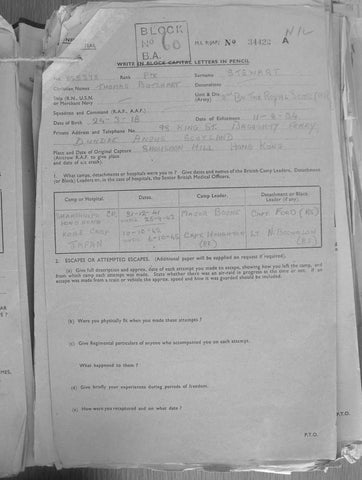 BLOCK
No 60
B.A.
M.I. 9/JAP/ No 34422 A
NIL
WRITE IN BLOCK CAPITAL LETTERS IN PENCIL
Rank Pte Surname STEWART
Christian Names THOMAS Decorations
Ship (R.N., U.S.N. or Merchant Navy) Unit & Div. (Army) 2nd BN THE ROYAL SCOTS
Squadron and Command (R.A.F., A.A.F.)
Date of Birth 24-3-18 Date of Enlistment
Private Address and Telephone No. 99 KING ST. BROUGHTY FERRY
DUNDEE ANGUS SCOTLAND
Place and Date of Original Capture HILL HONG KONG
(Aircrew R.A.F. to give place
and date of a/c crash)
1. What camps, detachments or hospitals were you in? Give dates and names of the British Camp Leaders, Detachment
(or Block) Leaders or, in the case of hospitals, the Senior British Medical Officers.
Camp or Hospital. Dates. Camp Leader. Detachment or Block Leader (if any).
HONG KONG 31-12-41 MAJOR BOONE CAPT FORD (RS)
KOBE CAMP JAPAN 10-10-42 CAPT
2. ESCAPES OR ATTEMPTED ESCAPES. (Additional paper will be supplied on request if required).
(a) Give full description and approx. date of each attempt you made to escape, showing how you left the camp, and
from which camp each attempt was made. State whether there was an air-raid in progress at the time or not. If an
escape was made from a train or vehicle the approx. speed and how it was guarded should be included.
(b) Were you physically fit when you made these attempts?
(c) Give Regimental particulars of anyone who accompanied you on each attempt.
What happened to them?
(d) Give briefly your experiences during periods of freedom.
(e) How were you recaptured and on what date?
P.T.O.
P.T.O.